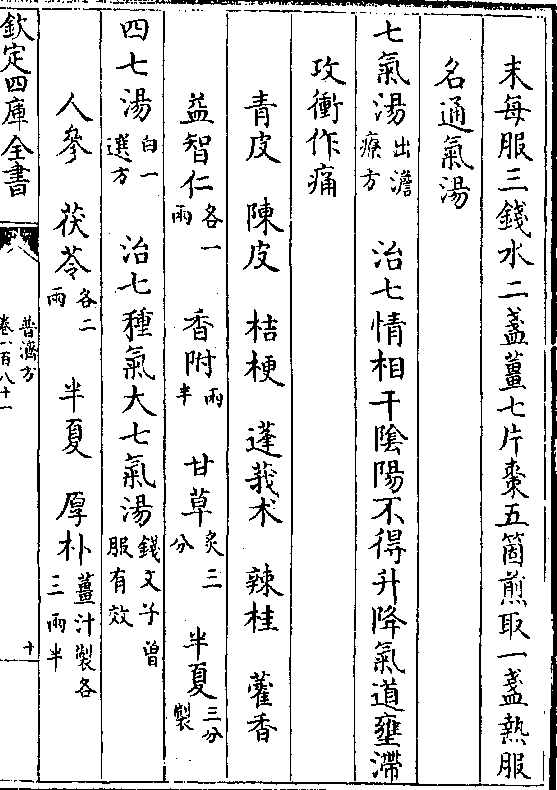 末每服三錢水二盞薑七片棗五箇煎取一盞熱服
名通氣湯
七氣湯出澹療方 治七情相干陰陽不得升降氣道壅滯
攻衝作痛
青皮 陳皮 桔梗 蓬莪朮 辣桂 藿香
益智仁各一兩 香附兩半 甘草炙三分 半夏三分製
四七湯白一選方 治七種氣大七氣湯錢文子曾服有效
人參 茯苓各二兩 半夏 厚朴薑汁製各三兩半
欽定四庫全書
普濟方
卷一百八十一
十